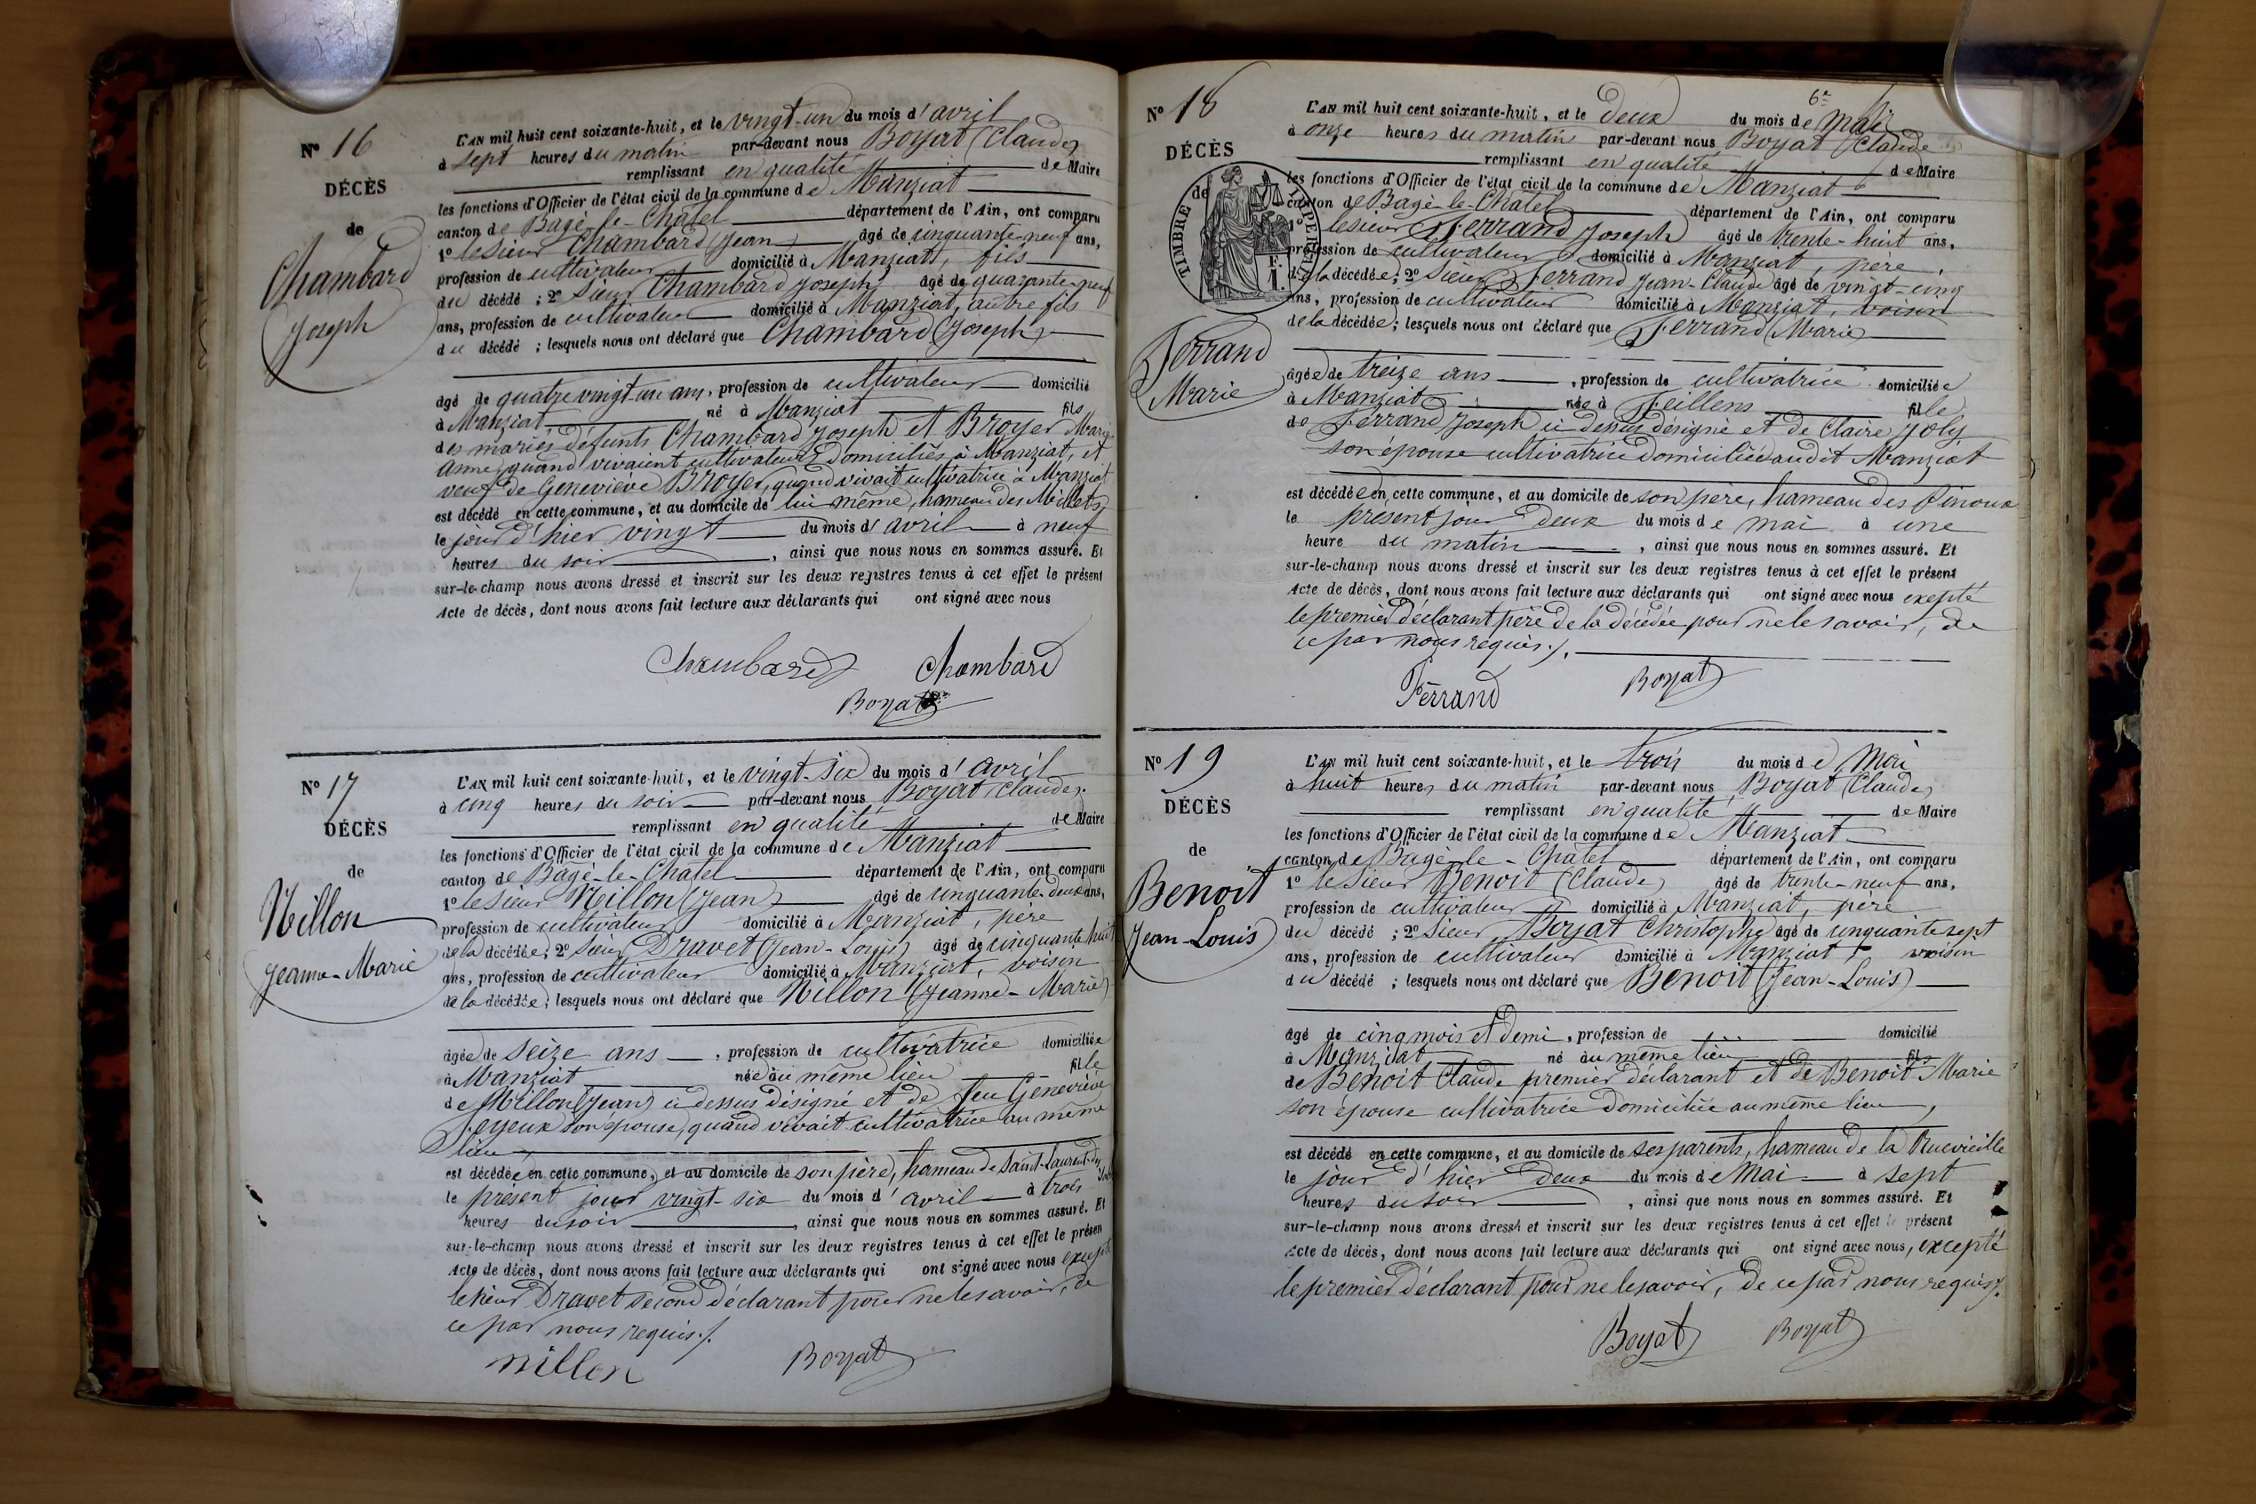 N° 16
DÉCÈS
de
Chambard
Joseph
L'AN mil huit cent soixante-huit, et le vingt-un du mois d'avril
à sept heures du matin par-devant nous Boyat (Claude)
remplissant en qualité de Maire
les fonctions d'Officier de l'état civil de la commune de Manziat
canton de Bagé-le-Chatel département de l'Ain, ont comparu
1° le sieur Chambard (Jean) âgé de cinquante-neuf ans,
profession de cultivateur domicilié à Manziat, fils
du décédé ; 2° Sieur Chambard Joseph âgé de quarante-neuf
ans, profession de cultivateur domicilié à Manziat, autre fils
du décédé ; lesquels nous ont déclaré que Chambard (Joseph)
âgé de quatre vingt-un ans, profession de cultivateur domicilié
à Manziat né à Manziat fils
des mariés défunts Chambard Joseph et Broyer Marie
Anne, quand vivaient cultivateurs domiciliés à Manziat, et
veuf de Geneviève Broyer, quand vivait cultivatrice à Manziat
est décédé en cette commune, et au domicile de lui-même, hameau des Millets
le jour d'hier vingt du mois d'avril à neuf
heures du soir, ainsi que nous nous en sommes assuré. Et
sur-le-champ nous avons dressé et inscrit sur les deux registres tenus à cet effet le présent
Acte de décès, dont nous avons fait lecture aux déclarants qui ont signé avec nous
Chambard Chambard
Boyat
N° 17
DÉCÈS
de
Nillon
Jeanne-Marie
L'AN mil huit cent soixante-huit, et le vingt-six du mois d'avril
à cinq heures du soir par-devant nous Boyat (Claude)
remplissant en qualité de Maire
les fonctions d'Officier de l'état civil de la commune de Manziat
canton de Bagé-le-Chatel département de l'Ain, ont comparu
1° le sieur Nillon (Jean) âgé de cinquante-deux ans,
profession de cultivateur domicilié à Manziat, père
de la décédée ; 2° Sieur Dravet (Jean-Louis) âgé de cinquante huit
ans, profession de cultivateur domicilié à Manziat, voisin
de la décédée ; lesquels nous ont déclaré que Nillon (Jeanne-Marie)
âgée de seize ans, profession de cultivatrice domiciliée
à Manziat née au même lieu fille
de Nillon (Jean) ci dessus désigné et de feu Geneviève
Feyeux son épouse, quand vivait cultivatrice au même
lieu
est décédée en cette commune, et au domicile de son père, hameau de Saint-Laurent
le présent jour vingt-six du mois d'avril à trois
heures du soir, ainsi que nous nous en sommes assuré. Et
sur-le-champ nous avons dressé et inscrit sur les deux registres tenus à cet effet le présen
Acte de décès, dont nous avons fait lecture aux déclarants qui ont signé avec nous excepté
le sieur Dravet second déclarant pour ne le savoir, de
ce par nous requis ./.
Nillon Boyat
N° 18
DÉCÈS
de
TIMBRE IMPERIAL
1 F.
Ferrand
Marie
L'AN mil huit cent soixante-huit, et le deux du mois de Mai
à onze heures du matin par-devant nous Boyat (Claude
remplissant en qualité de Maire
les fonctions d'Officier de l'état civil de la commune de Manziat
canton de Bagé-le-Chatel département de l'Ain, ont comparu
1° le sieur Ferrand Joseph âgé de trente-huit ans,
profession de cultivateur domicilié à Manziat, père
de la décédée ; 2° Sieur Ferrand Jean-Claude âgé de vingt-cinq
ans, profession de cultivateur domicilié à Manziat, voisin
de la décédée ; lesquels nous ont déclaré que Ferrand (Marie)
âgée de treize ans, profession de cultivatrice domiciliée
à Manziat née à Feillens fille
de Ferrand Joseph ci dessus désigné et de Claire Joly
son épouse cultivatrice domiciliée audit Manziat
est décédée en cette commune, et au domicile de son père, hameau des Pinoux
le présent jour deux du mois de mai à une
heure du matin, ainsi que nous nous en sommes assuré. Et
sur-le-champ nous avons dressé et inscrit sur les deux registres tenus à cet effet le présent
Acte de décès, dont nous avons fait lecture aux déclarants qui ont signé avec nous excepté
le premier déclarant père de la décédée pour ne le savoir, de
ce par nous requis ./.
Ferrand Boyat
N° 19
DÉCÈS
de
Benoit
Jean-Louis
L'AN mil huit cent soixante-huit, et le trois du mois de Mai
à huit heures du matin par-devant nous Boyat (Claude)
remplissant en qualité de Maire
les fonctions d'Officier de l'état civil de la commune de Manziat
canton de Bagé-le-Chatel département de l'Ain, ont comparu
1° le sieur Benoit (Claude) âgé de trente-neuf ans,
profession de cultivateur domicilié à Manziat, père
du décédé ; 2° Sieur Boyat Christophe âgé de cinquante sept
ans, profession de cultivateur domicilié à Manziat voisin
du décédé ; lesquels nous ont déclaré que Benoit (Jean-Louis)
âgé de cinq mois et demi, profession de domicilié
à Manziat né au même lieu fils
de Benoit Claude premier déclarant et de Benoit Marie
son épouse cultivatrice domiciliée au même lieu,
est décédé en cette commune, et au domicile de ses parents, hameau de la Ruevieille
le jour d'hier deux du mois de Mai à sept
heures du soir, ainsi que nous nous en sommes assuré. Et
sur-le-champ nous avons dressé et inscrit sur les deux registres tenus à cet effet le présent
Acte de décès, dont nous avons fait lecture aux déclarants qui ont signé avec nous, excepté
le premier déclarant pour ne le savoir, de ce par nous requis ./.
Boyat Boyat